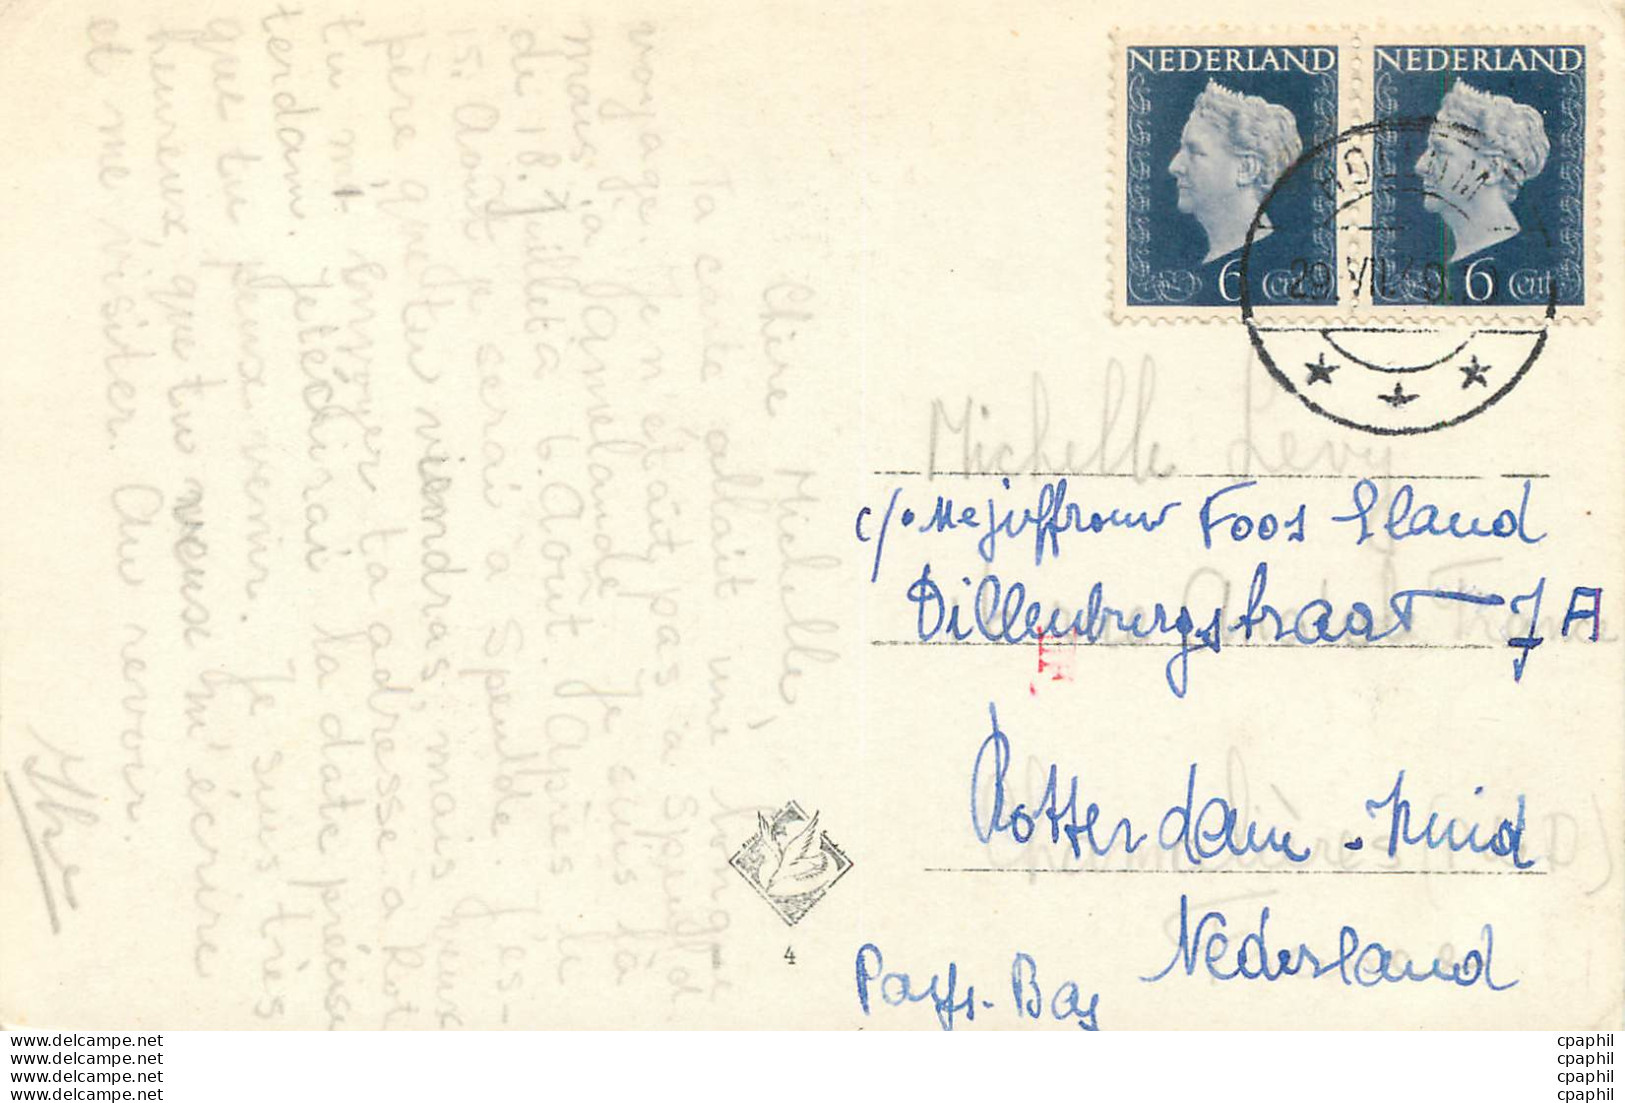 Chère Michelle,
Ta carte allait une longue
voyage. Je n'étaît pas à Speuld
mais à Janvelande. Je suis là
di 18. Juillet à 6. Août. Après le
15. Août je serai à Speulde. J'es-
père que tu viendras, mais veux
tu m' envoyer ta adresse à Rot
terdam. Je técrirai la date précise
que tu peux venir. Je suis très
heureux, que tu veux m' écrire
et me visiter. Au revoir.
NEDERLAND
6 Cent
NEDERLAND
6
29.VII.49
Michelle Levy
c/o Mejuffrouw Foos Eland
Dillenburgstraat 7 A
Rotterdam - Zuid
Nederland
Pays-Bas
4
www.delcampe.net
www.delcampe.net
www.delcampe.net
www.delcampe.net
cpaphil
cpaphil
cpaphil
cpaphil